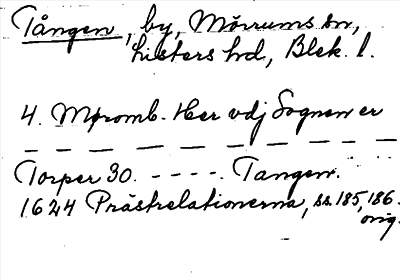 Tången, by, Mörrums sn,
Listers hd, Blek. l.
4. Møromb. Her vdj Sognen er
— — — — — — — — — —
Torper 30. - - - - . Tangen.
1624 Prästrelationerna, ss. 185, 186.
orig.